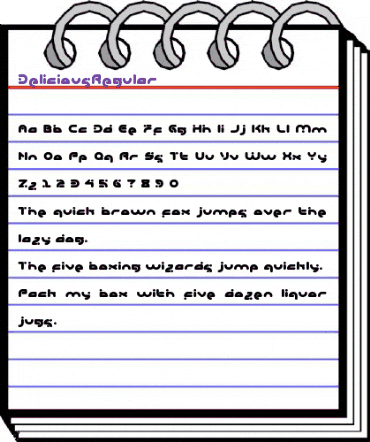 DeliciousRegular
Aa Bb Cc Dd Ee Ff Gg Hh Ii Jj Kk Ll Mm
Nn Oo Pp Qq Rr Ss Tt Uu Vv Ww Xx Yy
Zz 1 2 3 4 5 6 7 8 9 0
The quick brown fox jumps over the
lazy dog.
The five boxing wizards jump quickly.
Pack my box with five dozen liquor
jugs.